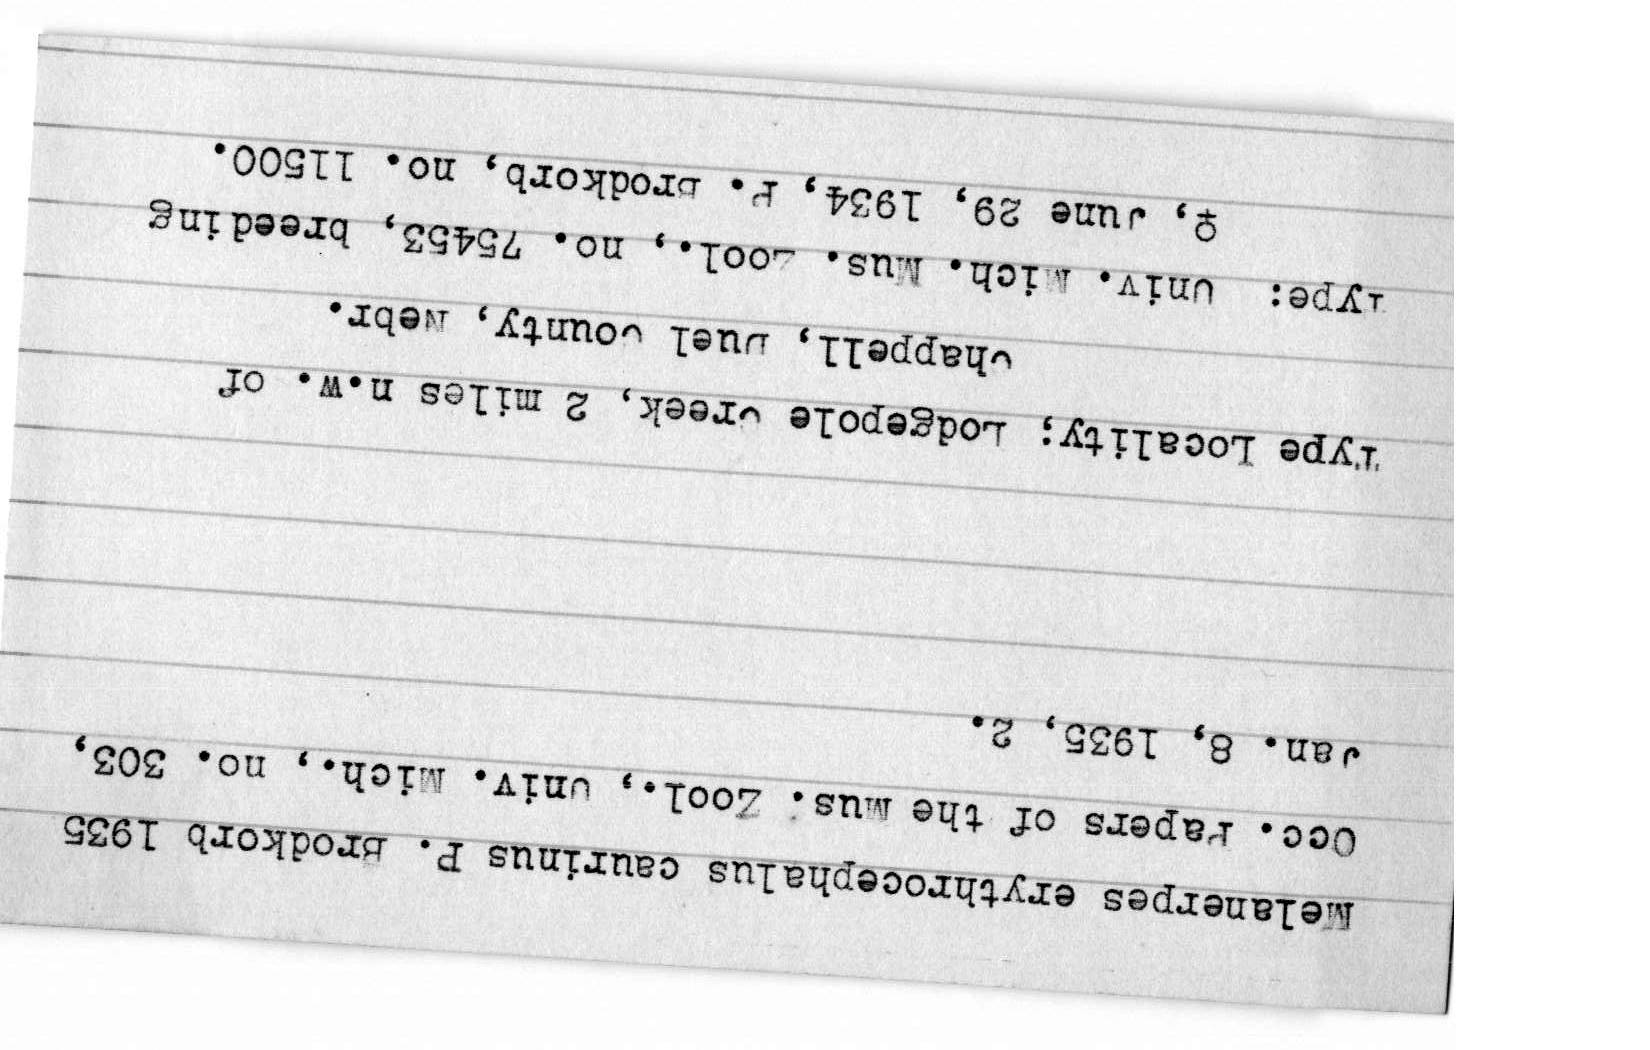 Melanerpes erythrocephalus caurinus P. Brodkorb 1935
Occ. Papers of the Mus. Zool., Univ. Mich., no. 303,
Jan. 8, 1935, 2.
Type Locality; Lodgepole Creek, 2 miles n.w. of
Chappell, Duel County, Nebr.
Type: Univ. Mich. Mus. Zool., no. 75453, breeding
♀, June 29, 1934, P. Brodkorb, no. 11500.